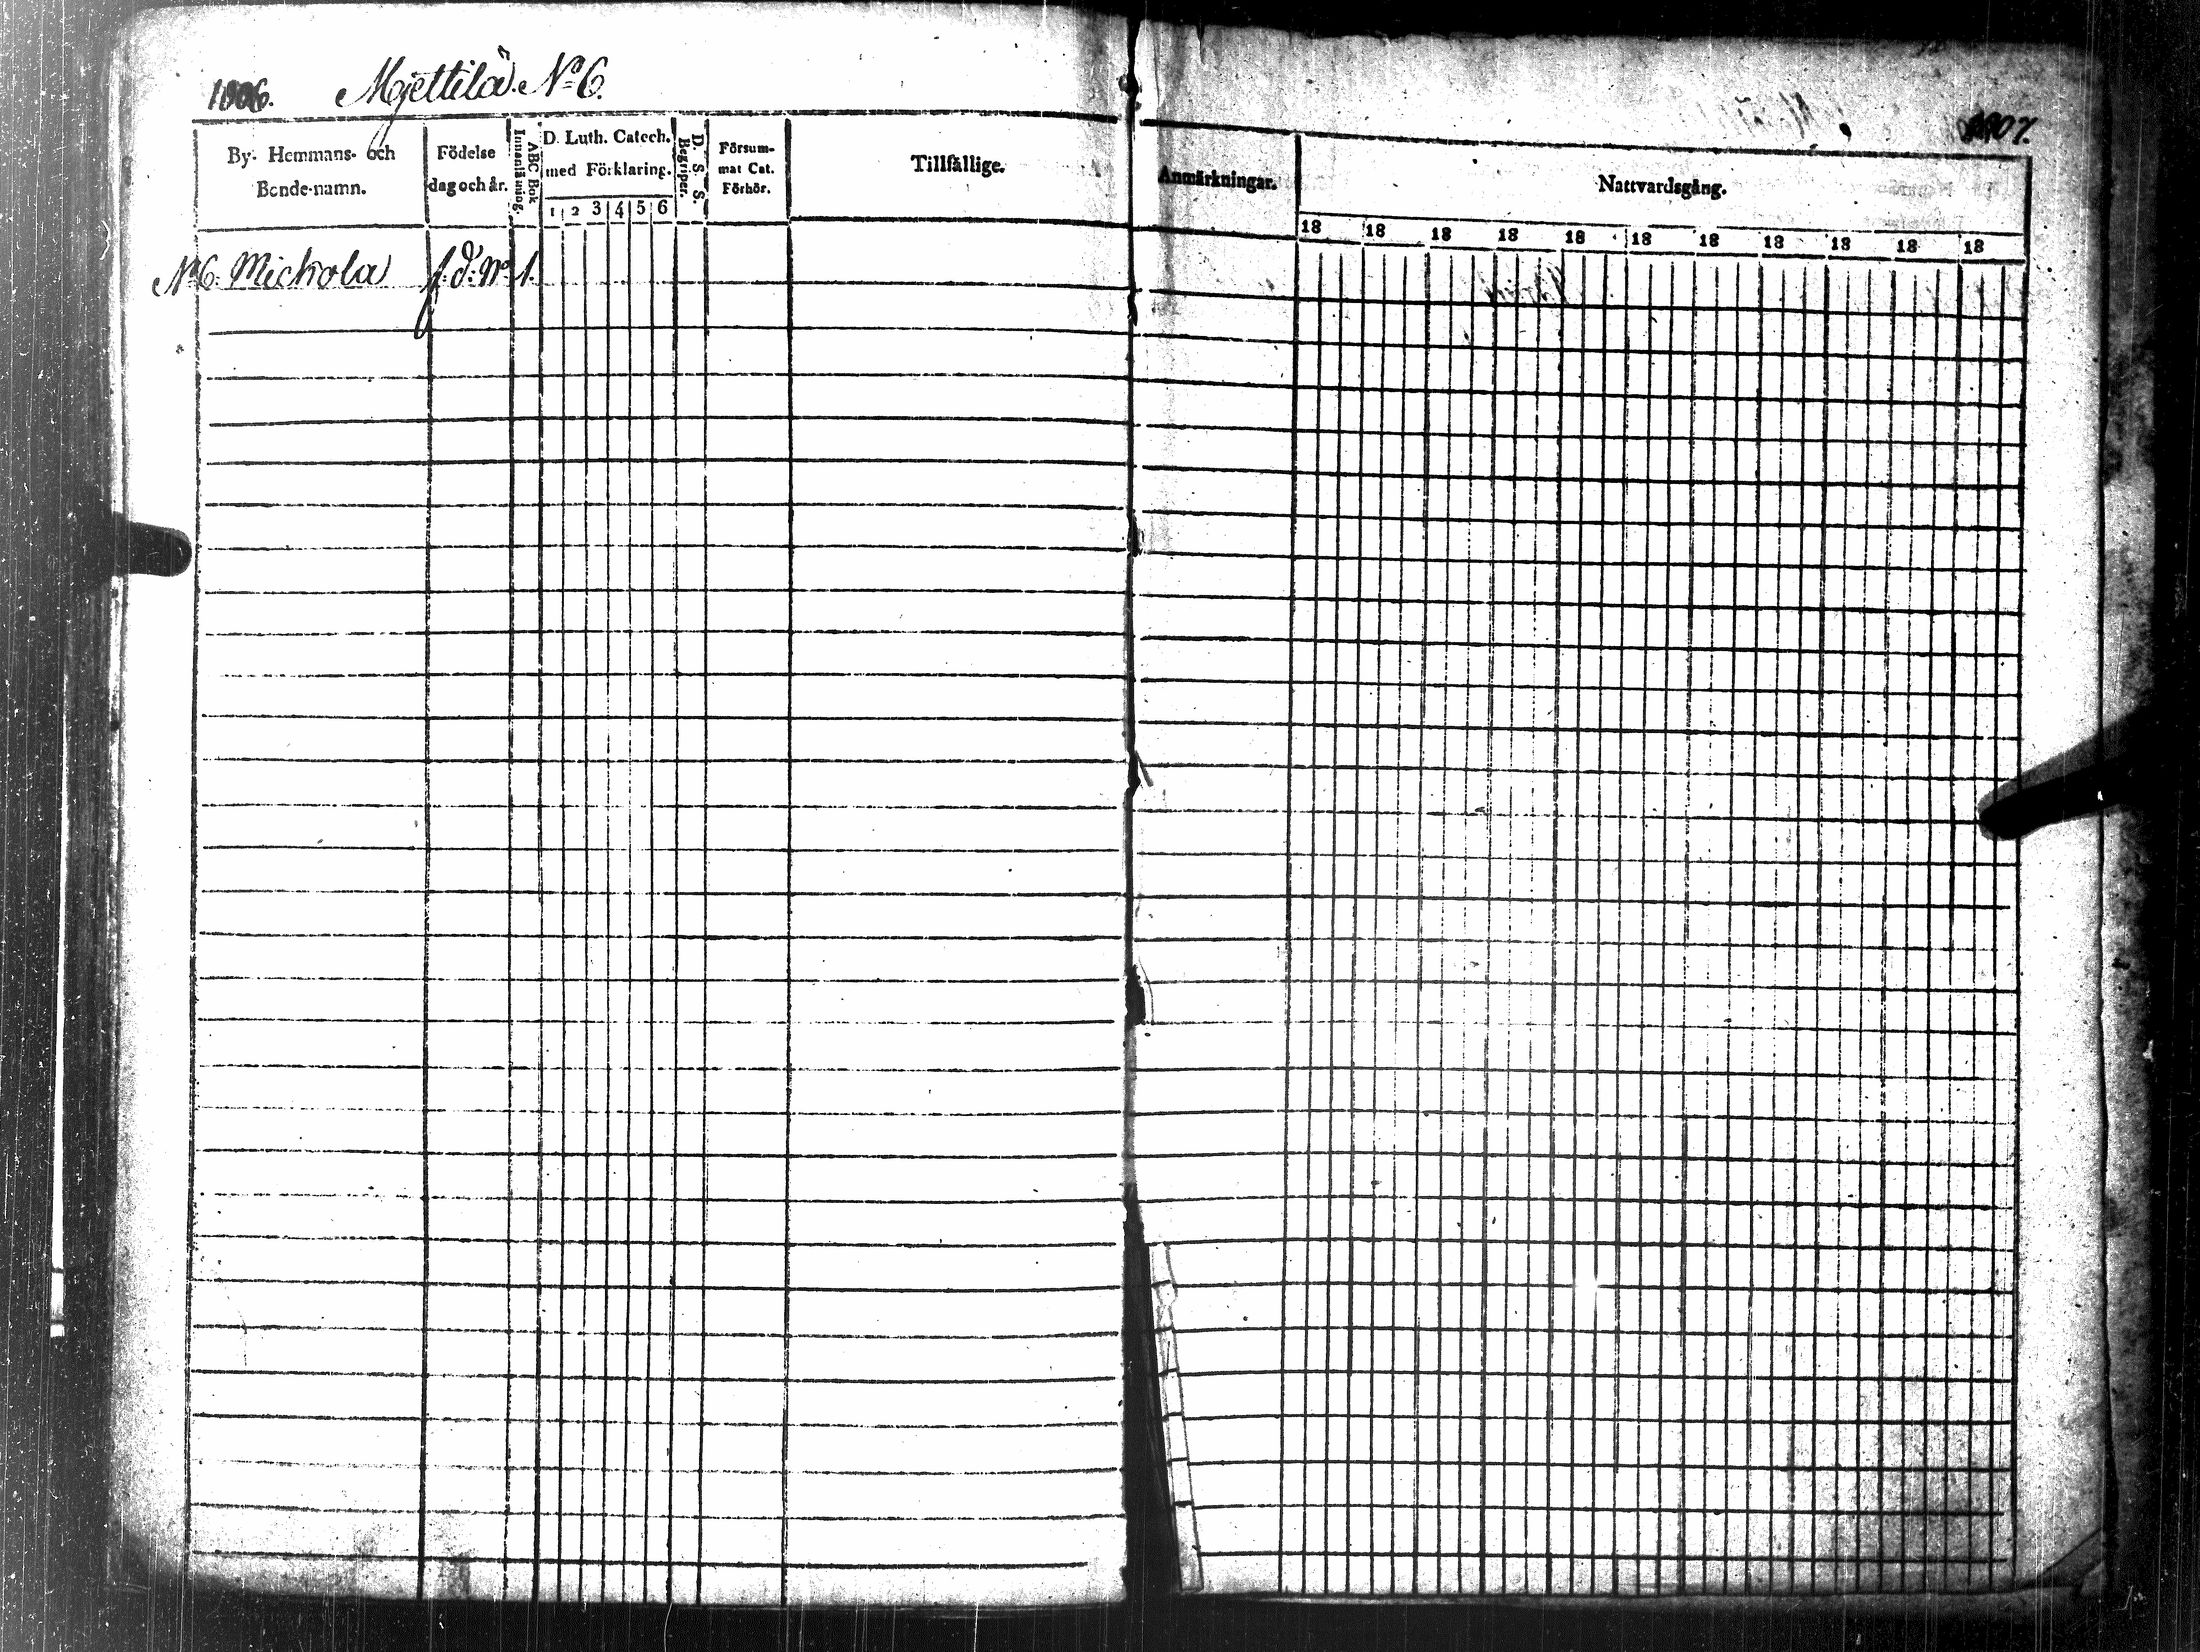 1006. Mjettilä. No 6.
1007.
By- Hemmans- och
Bonde-namn.
Födelse
dag och år.
ABC Bok
Innanläsning.
D. Luth. Catech.
med Förklaring.
1 2 3 4 5 6
D. S. S.
Begriper.
Försum-
mat Cat.
Förhör.
Tillfällige
Anmärkningar.
Nattvardsgång.
18 18 18 18 18 18 18 18 18 18 18
No 6. Mickola f. d: No 1.